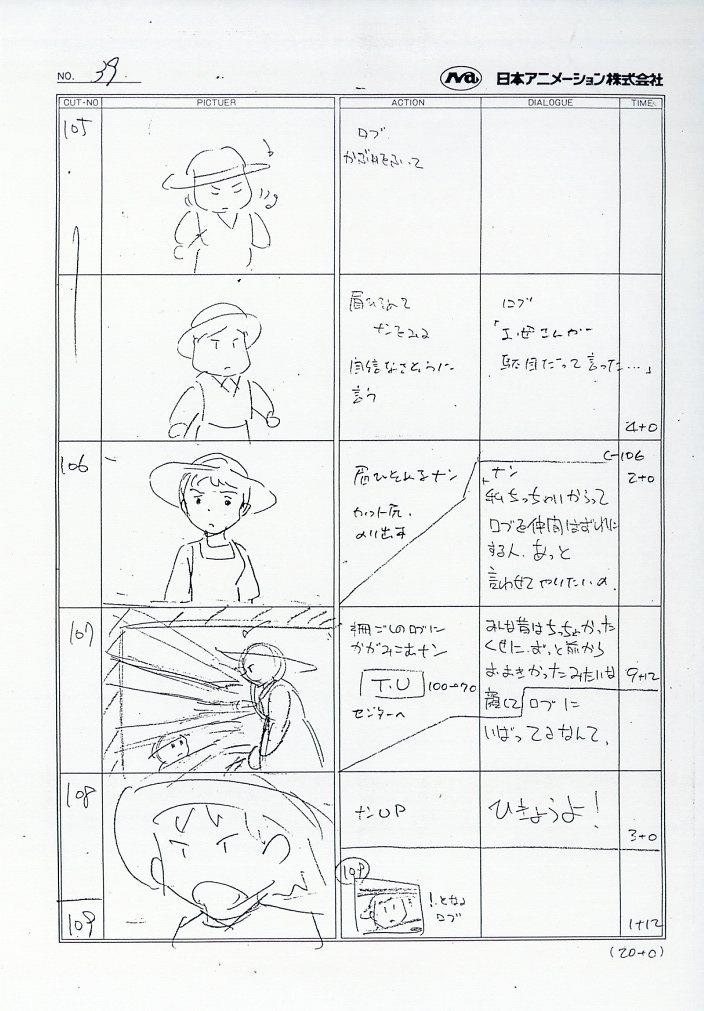 NO. 39
日本アニメーション株式会社
CUT-NO PICTUER ACTION DIALOGUE TIME
105
ロブ
かぶりをふって
眉ひそめて
ナンをみる
自信なさそうに
言う
ロブ
駄目だって言った…」
4+0
106
眉ひそめるナン
カット尻
C-106
2+0
ナン
「私 ちっちゃいからって
ロブを仲間はずれに
する人、あっと
言わせてやりたいの
107
柵ごしのロブに
かがみこむナン
T.U 100→70
センターへ
みんな昔はちっちゃかった
くせに、ずっと前から
おおきかったみたいな
顔して ロブに
いばってるなんて、
9+12
108
ナンUP
ひきょうよ!
3+0
109
109
ロブ
1+12
(20+0)